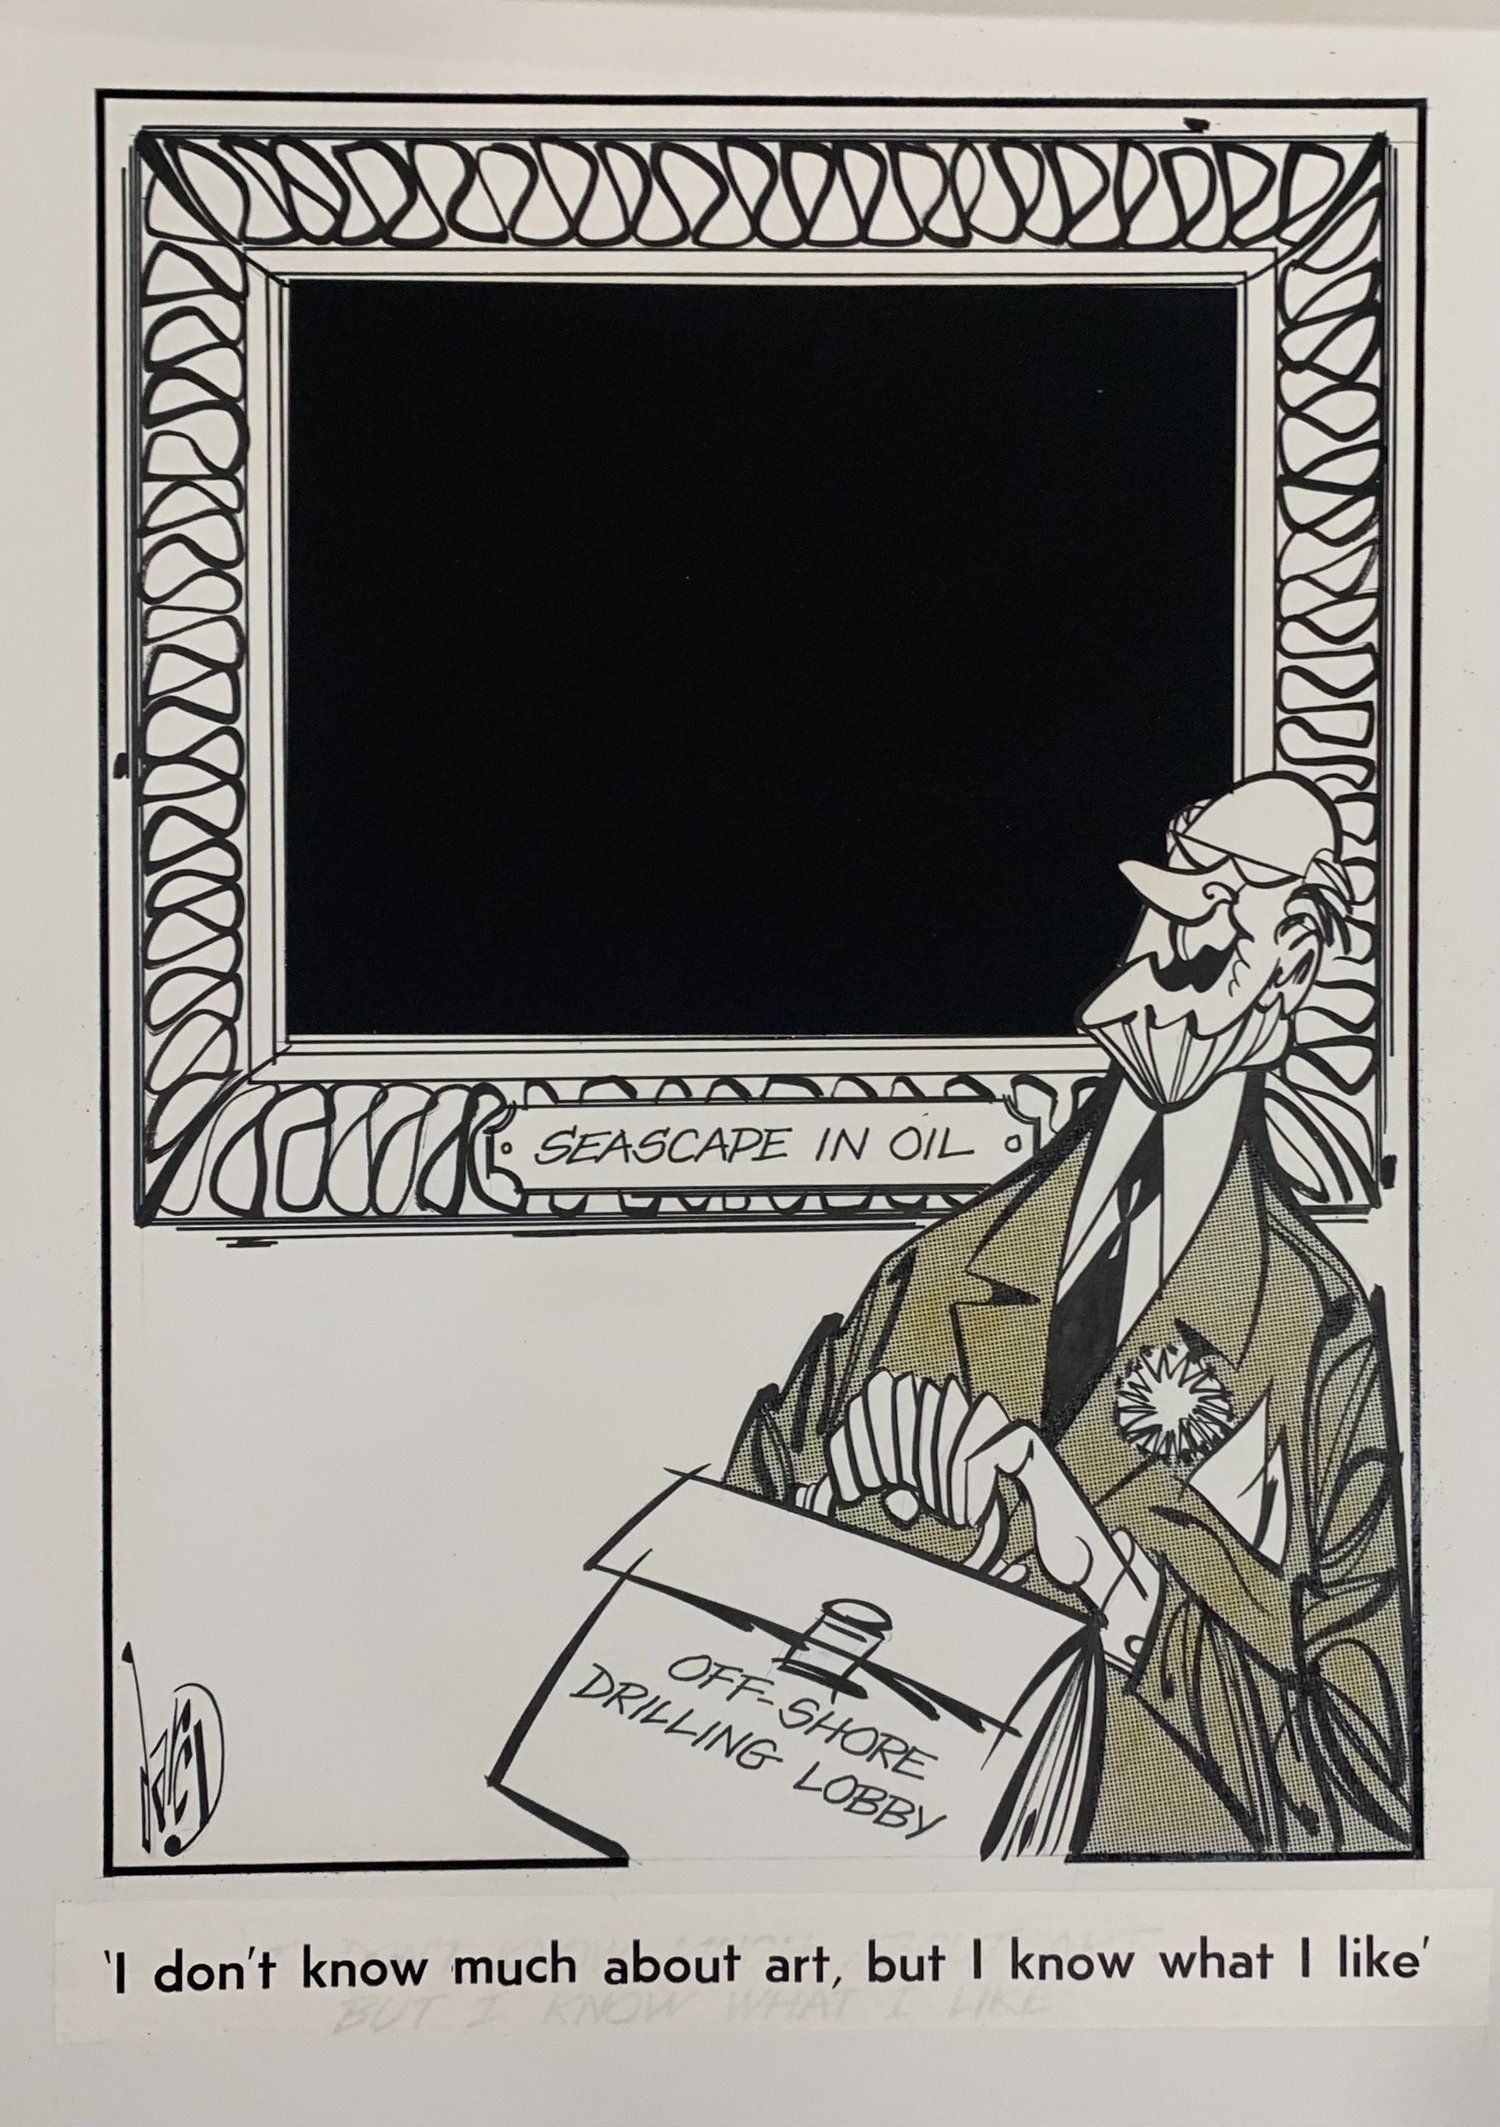 SEASCAPE IN OIL
OFF-SHORE
DRILLING LOBBY
'I don't know much about art, but I know what I like'
BUT I KNOW WHAT I LIKE